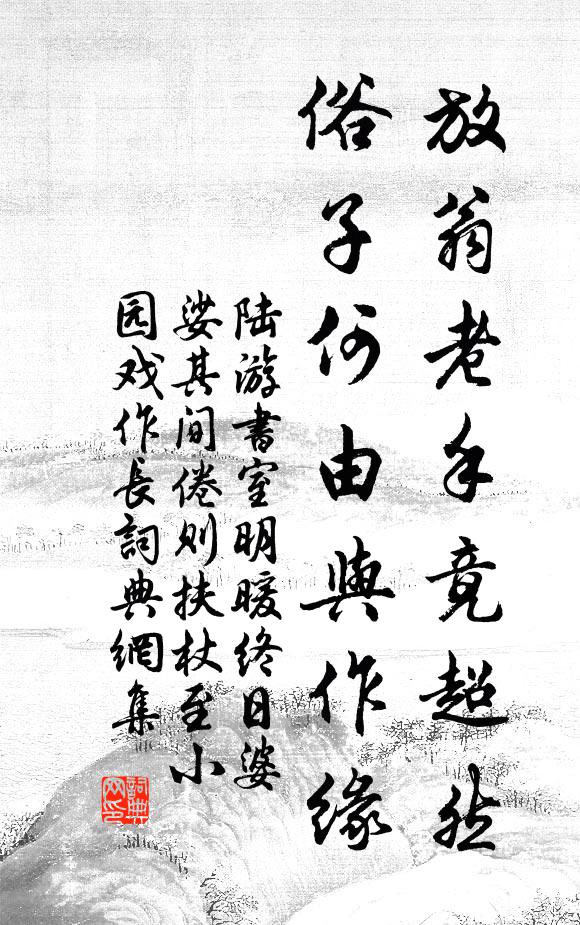 放翁老手竟超然
俗子何由與作緣
陆游書室明暖终日婆
娑其间倦则扶杖至小
园戏作長詞典網集
詞典
网印